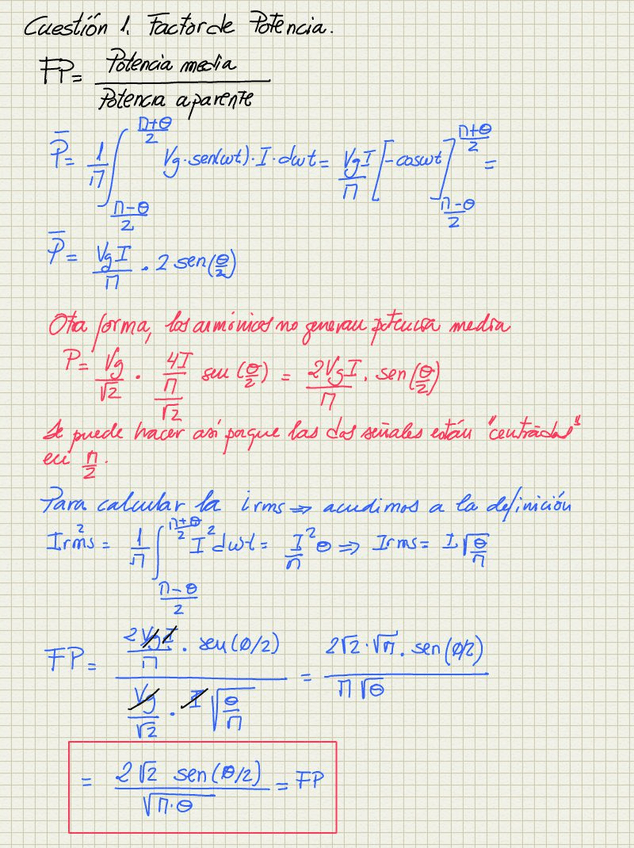 Cuestión 1. Factor de Potencia.
FP = Potencia media / Potencia aparente
P̄ = 1/π ∫_{(π-θ)/2}^{(π+θ)/2} Vg·sen(ωt)·I·dωt = VgI/π [-cosωt]_{(π-θ)/2}^{(π+θ)/2} =
P̄ = VgI/π · 2 sen(θ/2)
Otra forma, los armónicos no generan potencia media
P = Vg/√2 · (4I/π)/√2 sen(θ/2) = 2VgI/π · sen(θ/2)
Se puede hacer así porque las dos señales están "centradas"
en π/2.
Para calcular la irms ⇒ acudimos a la definición
Irms² = 1/π ∫_{(π-θ)/2}^{(π+θ)/2} I² dωt = I²/π θ ⇒ Irms = I√(θ/π)
FP = (2VgI/π · sen(θ/2)) / (Vg/√2 · I√(θ/π)) = (2√2·√π · sen(θ/2)) / (π√θ)
= (2√2 sen(θ/2)) / √(π·θ) = FP